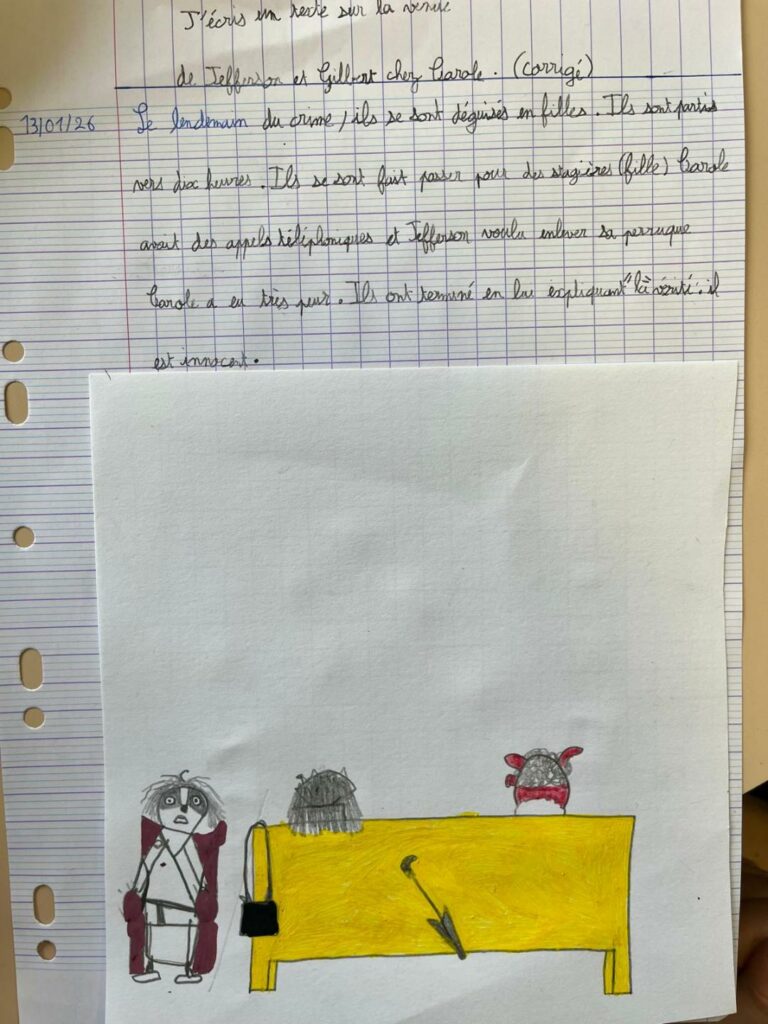 J'écris un texte sur la venue
de Jefferson et Gilbert chez Carole. (corrigé)
13/01/26 Le lendemain du crime, ils se sont déguisés en filles. Ils sont partis
vers dix heures. Ils se sont fait passer pour des stagières (fille) Carole
avait des appels téléphoniques et Jefferson voulu enlever sa perruque
Carole a eu très peur. Ils ont terminé en lui expliquant "la vérité": il
est innocent.